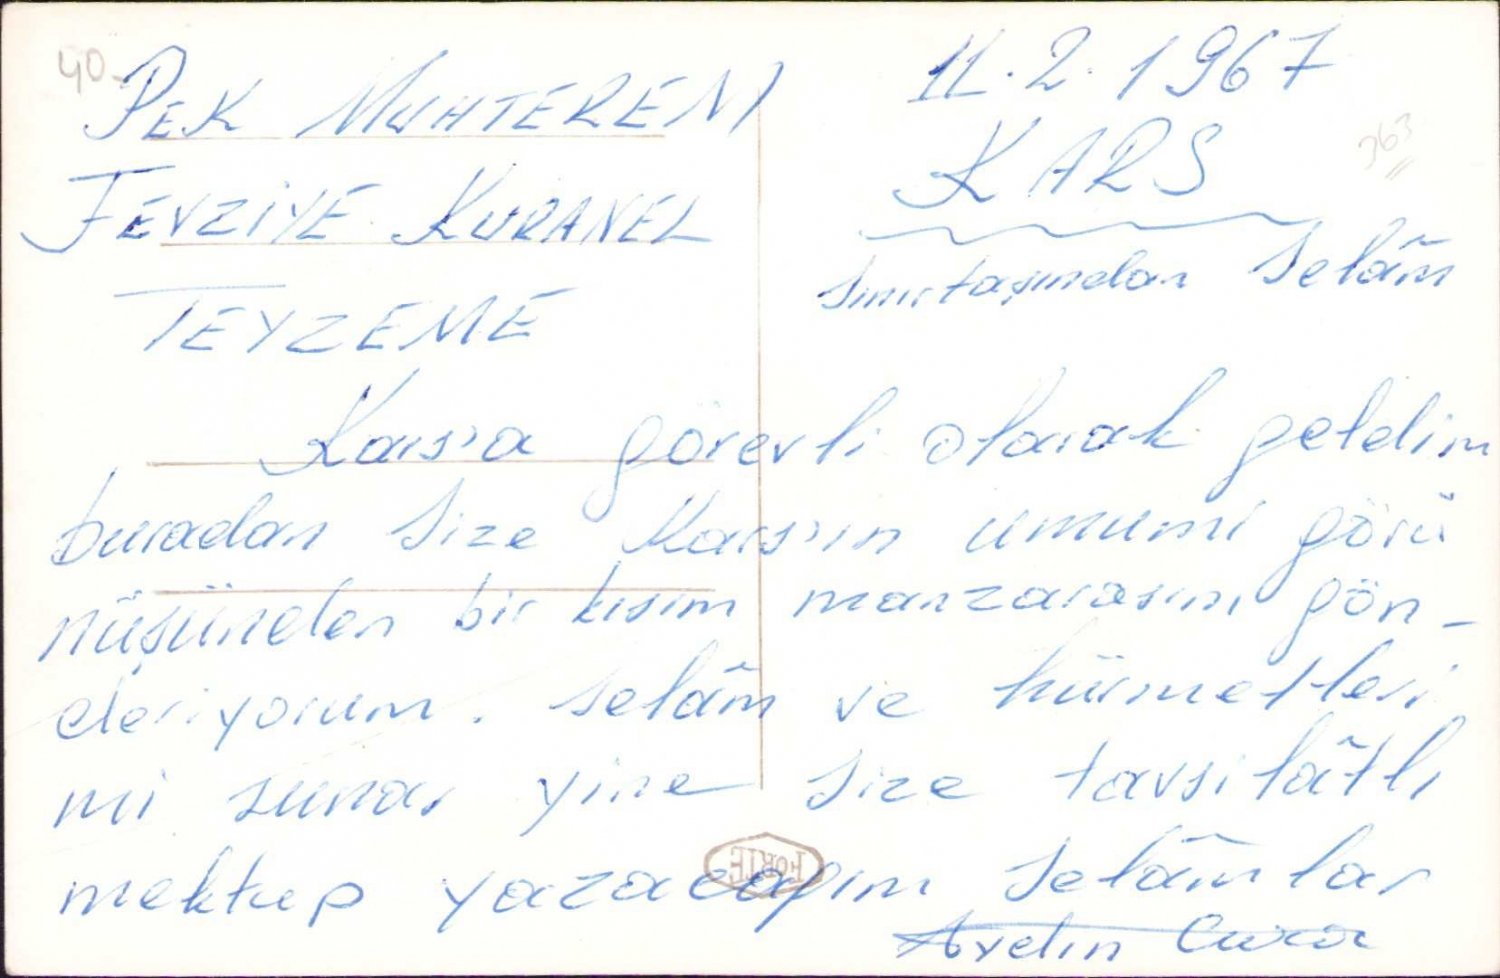 40.-
PEK MUHTEREM
FEVZİYE KURANEL
TEYZEME
11.2.1967
KARS
363
Sınırtaşından Selâm
Kars'a görevli olarak geldim
buradan size Kars'ın umumi görü
nüşünden bir kısım manzarasını gön-
deriyorum. Selâm ve hürmetleri
mi sunar yine size tavsilâtlı
mektup yazacağım Selâmlar
FORTE
Aydın